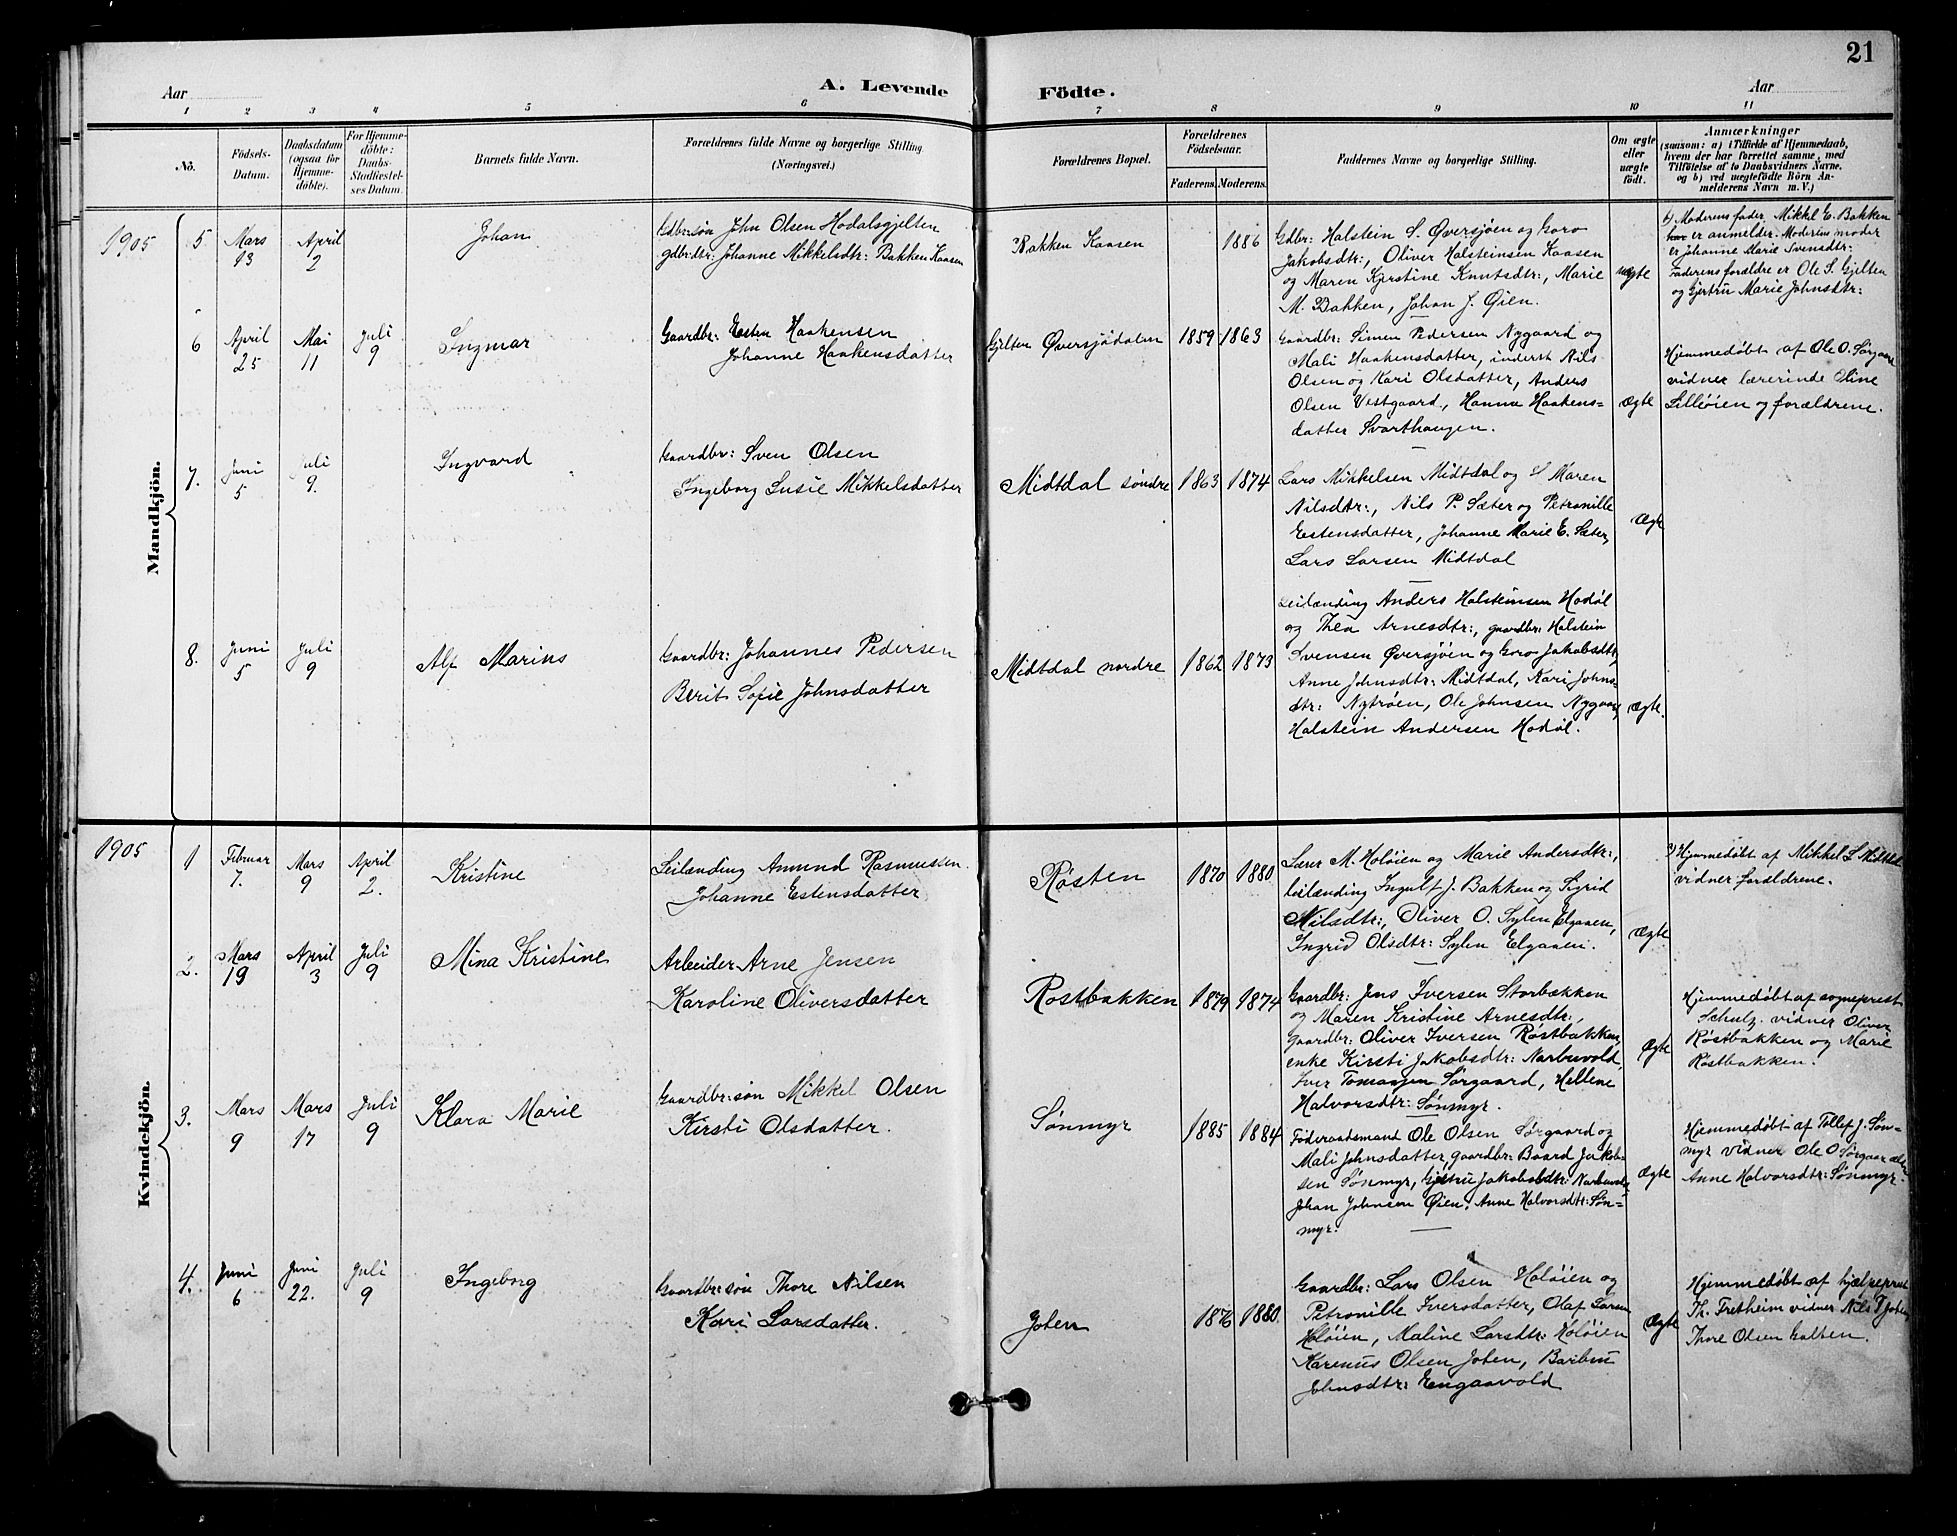 21
A. Levende Födte.
Aar
Aar
1 2 3 4 5 6 7 8 9 10 11
Nö.
Födsels-
Datum.
Daabsdatum
(ogsaa for
Hjemme-
döbte).
For Hjemme-
döbte:
Daabs-
Stadfæstel-
ses Datum.
Barnets fulde Navn.
Forældrenes fulde Navne og borgerlige Stilling
(Næringsvei.)
Forældrenes Bopæl.
Forældrenes
Födselsaar.
Faderens. Moderens.
Faddernes Navne og borgerlige Stilling.
Om ægte
eller
uægte
födt.
Anmærkninger
(saasom: a) i Tilfælde af Hjemmedaab,
hvem der har forrettet samme, med
Tilföielse af to Daabsvidners Navne,
og b) ved uægtefödte Börn An-
melderens Navn m. V.)
Mandkjön.
1905
5
Mars
13
April
2
Johan
Gdbr:søn John Olsen Hodalsgjelten
gdbr:dtr: Johanne Mikkelsdtr: Bakken Kaasen
Bakken Kaasen
1886
Gdbr: Halstein S. Øversjøen og Goro
Jakobsdtr:, Oliver Halsteinsen Kaasen
og Maren Kjerstine Knutsdtr:, Marie
M. Bakken, Johan J. Øien.
uægte
Moderens fader Mikkel E. Bakken
er anmelder. Moderens moder
er Johanne Marie Svensdtr:
Faderens forældre er Ole S. Gjelten
og Gjertru Marie Johnsdtr:
6
April
25
Mai
11
Juli
9
Ingmar
Gaardbr: Esten Haakensen
Johanne Haakensdatter
Gjelten Øversjødalen
1859
1863
Gaardbr: Simen Pedersen Nygaard og
Mali Haakensdatter, inderst Nils
Olsen og Kari Olsdatter, Anders
Olsen Vestgaard, Hanna Haakens=
datter Svarthaugen.
Ægte
Hjemmedøbt af Ole O. Sørgaard
vidner lærerinde Oline
Lilløien og forældrene.
7.
Juni
5
Juli
9.
Ingvard
Gaardbr: Sven Olsen
Ingeborg Susie Mikkelsdatter
Midtdal søndre
1863
1874
Lars Mikkelsen Midtdal og Maren
Nilsdtr:, Nils P. Sæter og Petronille
Estensdatter, Johanne Marie E. Sæter,
Lars Larsen Midtdal
Ægte
8.
Juni
5
Juli
9
Alf Marius
Gaardbr: Johannes Pedersen
Berit Sofie Johnsdatter
Midtdal nordre
1862
1873
Leilænding Anders Halsteinsen Hodøl
og Thea Arnesdtr:, gaardbr: Halstein
Svensen Øversjøen og Goro Jakobsdtr,
Anne Johnsdtr: Midtdal, Kari Johns=
dtr: Nytrøen, Ole Johnsen Nygaard,
Halstein Andersen Hodøl.
Ægte.
Kvindekjön.
1905
1
Februar
7.
Mars
9
April
2.
Kristine
Leilænding Amund Rasmussen.
Johanne Estensdatter
Røsten
1870
1880
Lærer M. Holøien og Marie Andersdtr:,
leilænding Ingulf J. Bakken og Sigrid
Nilsdtr:, Oliver O. Sylen Elgaaen,
Ingrid Olsdtr: Sylen Elgaaen.
Ægte
Hjemmedøbt af Mikkel S Midtdal
vidner forældrene.
2.
Mars
19
April
3
Juli
9
Mina Kristine
Arbeider Arne Jensen
Karoline Oliversdatter
Rostbakken
1879
1874
Gaardbr: Jens Iversen Storbækken
og Maren Kristine Arnesdtr:,
gaardbr: Oliver Iversen Røstbakken,
enke Kirsti Jakobsdtr: Narbuvold,
Iver Tomassen Sørgaard, Hellene
Halvorsdtr: Sønmyr.
Ægte
Hjemmedøbt af sogneprest
Schulz. vidner Oliver
Røstbakken og Marie
Røstbakken.
3.
Mars
9
Mars
17
Juli
9
Klara Marie
Gaardbr:søn Mikkel Olsen
Kirsti Olsdatter.
Sønmyr
1885
1884
Føderaadsmand Ole Olsen Sørgaard og
Mali Johnsdatter, gaardbr: Baard Jakob=
sen Sønmyr, Gjertru Jakobsdtr: Narbuvold,
Johan Johnsen Øien, Anne Halvorsdtr: Søn=
myr.
Ægte
Hjemmedøbt af Tollef J. Søn=
myr vidner Ole O Sørgaard
Anne Halvorsdtr: Sønmyr.
4.
Juni
6
Juni
22.
Juli
9
Ingeborg
Gaardbr:søn Thore Nilsen
Kari Larsdatter.
Joten
1876
1880.
Gaardbr: Lars Olsen Holøien og
Petronille Iversdatter, Olaf Larsen
Holøien, Maline Larsdtr: Holøien
Karenus Olsen Joten, Barbru
Johnsdtr: Engaavold
Ægte
Hjemmedøbt af hjælpeprest
Th. Fretheim vidner Nils T Joten,
Thore Olsen Galten.